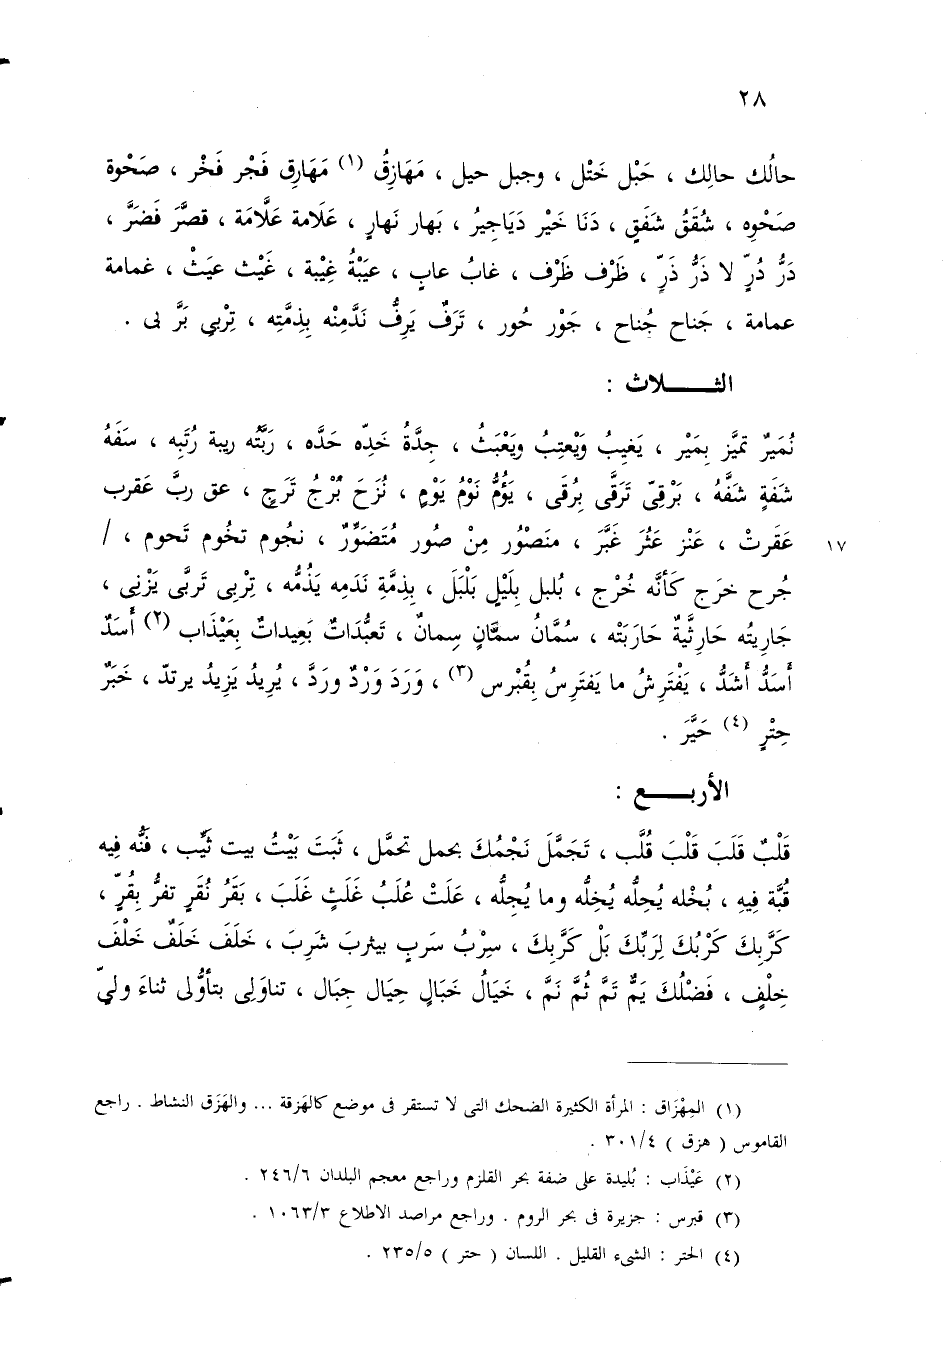 ٢٨
حالُك حالِك ، حَبْل خَتْل ، وجبل حيل ، مَهَازِقُ (١) مَهَارِق فَجْر فَخْر ، صَحْوة
صَحْوِه ، شُقَقُ شَفَقٍ ، دَنَا خَيْر دَيَاجِيرُ ، بَهار نَهارٍ ، عَلَامة عَلَّامَة ، قصَّرَ فَضَرَّ ،
دَرُّ دُرٍّ لا ذَرُّ ذَرٍّ ، ظَرْف ظَرْف ، غابُ عابٍ ، عَيَبْةُ غِيْبة ، غَيْث عيَثْ ، غمامة
عمامة ، جَناح جُناح ، جَوْر حُور ، تَرَفٌ يَرِفُّ نَدَّمِنْه بِذِمَّتِه ، تِرْبي بَرَّ بى .
الثـــلاث :
نُمَيرٌ تميَّز بِمَيْر ، يَغيبُ وَيْعتِبُ ويَعْبَثُ ، جِدَّةُ خَدِّه حَدَّه ، رَبَّتْه ريبة رُتَبِه ، سَفَهُ
شَفَةٍ شَفَّهُ ، بَرْقِيّ تَرَقَّى بِرُقَى ، يَؤُمُّ نَوْمُ يَوْمٍ ، نُزَحَ بُرْجُ تَرَجٍ ، عق ربَّ عَقرب
١٧ عَقَرتْ ، عَنْز عَثُرَ غَبَّرَ ، منَصْوُر مِنْ صُور مُتَضَوِّرٌ ، نجُوم تخُوم تَحوم ، /
جُرح خرَج كَأنَّه خُرْج ، بُلبل بِلَيْلٍ بَلْبَلَ ، بِذِمَّةِ نَدَمِه يَذُمُّه ، تِرْبِى تَربَّى يَزْنِى ،
جَاريتُه حَارِثَيةٌ حَارَبَتْه ، سُمَّانُ سمَّانٍ سِمانٌ ، تَعبُّدَاتٌ بَعِيداتٌ بِعَيْذَاب (٢) أَسَدٌ
أسَدُّ أشَدُّ ، يَفْتَرِشُ ما يَفتَرِسُ بِقُبْرس (٣) ، وَرَدَ وَرْدٌ ورَدَّ ، يُرِيدُ يَزِيدُ يرتدّ ، خَبَرٌ
حِتْرٍ (٤) حَيَّرَ .
الأربـــع :
قَلْبٌ قَلَبَ قَلْبَ قُلَّب ، تَجَمَّلَ نَجْمُكَ بحمل تحمَّل ، ثَبَتَ بَيْتُ بيت ثيِّب ، فَنُّه فِيه
قُبَّة فِيهِ ، بُخْله يُحِلُّه يُخِلُّه وما يُجِلُّه ، عَلَتْ عُلَبُ غَلَثٍ غَلَبَ ، بَقَرُ نُقَرٍ تفرُّ بِقُرٍّ ،
كَرَّبِكَ كَرْبُكَ لِرَبِّكَ بَلْ كَرَّبِكَ ، سِرْبُ سَربٍ بيثربَ شَرِبَ ، خَلَفَ خَلَفٌ خَلْفَ
خِلْفٍ ، فَضْلُكَ يَمٌّ تَمَّ ثُمَّ نَمَّ ، خَيَالُ خَبَالٍ حِيَال جِبَال ، تناوَلِى بتأوُّلى ثناءَ وليّ
(١) المِهْزَاق : المرأة الكثيرة الضحك التى لا تستقر فى موضع كالهَزِقة ... والهَزَق النشاط . راجع
القاموس ( هزق ) ٣٠١/٤ .
(٢) عَيْذَاب : بُليدة على ضفة بحر القلزم وراجع معجم البلدان ٢٤٦/٦ .
(٣) قبرس : جزيرة فى بحر الروم . وراجع مراصد الاطلاع ١٠٦٣/٣ .
(٤) الحتر : الشىء القليل . اللسان ( حتر ) ٢٣٥/٥ .